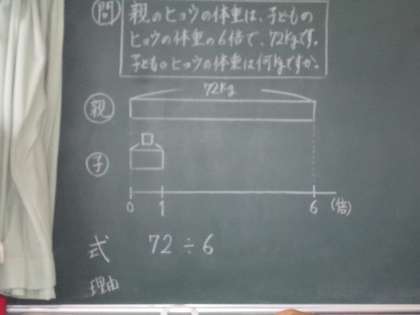 問 親のヒョウの体重は、子どもの
ヒョウの体重の6倍で、72kgです。
子どものヒョウの体重は何kgですか。
72kg
親
子
0 1 6 (倍)
式 72÷6
理由